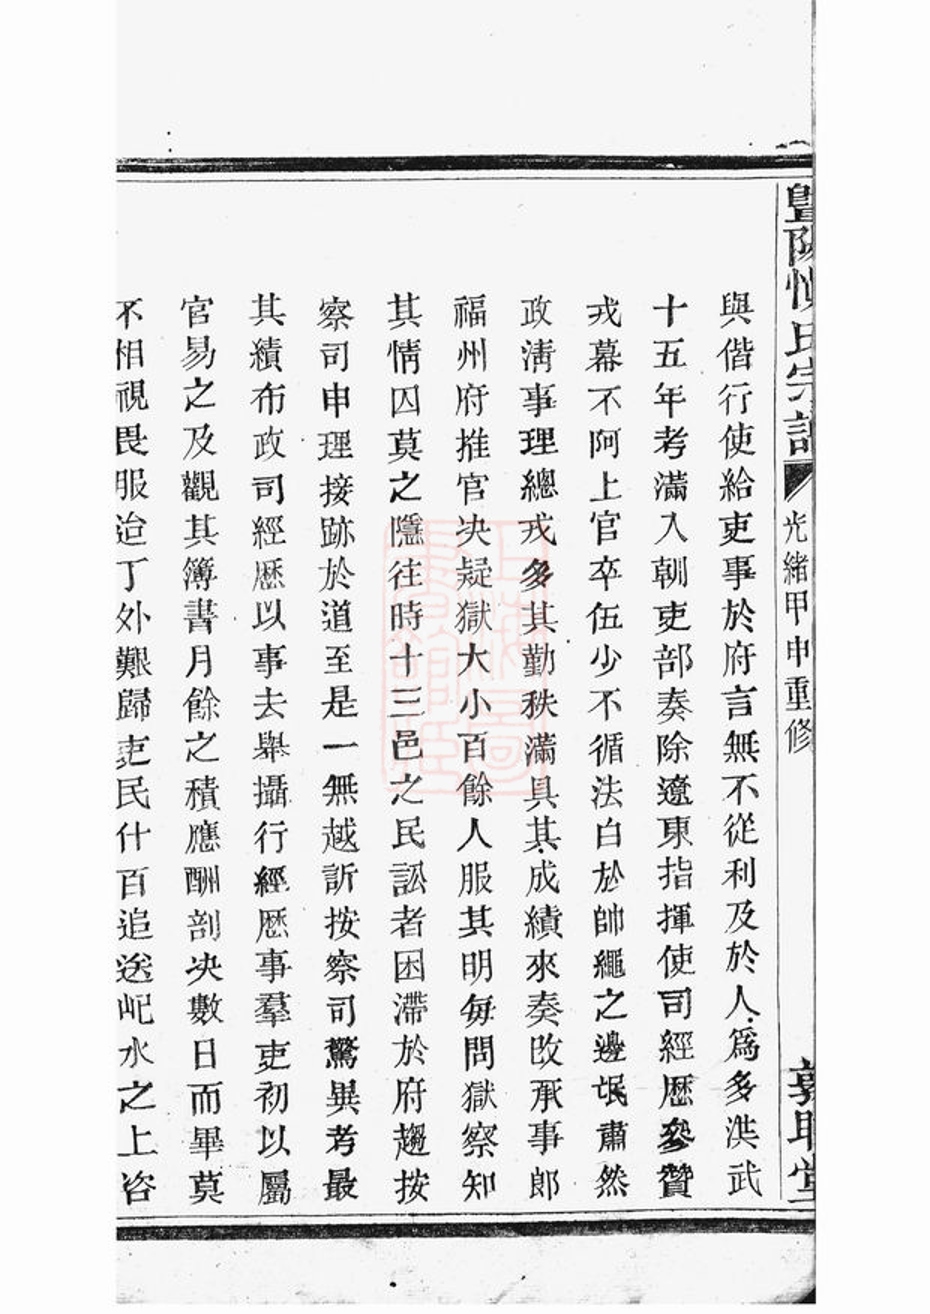 暨陽慎氏宗譜 光緒甲申重修 敦睦堂
與偕行使給吏事於府言無不從利及於人爲多洪武
十五年考滿入朝吏部奏除遼東指揮使司經歷參贊
戎幕不阿上官卒伍少不循法白於帥繩之邊氓肅然
政淸事理總戎多其勤秩滿具其成績來奏改承事郎
福州府推官决疑獄大小百餘人服其明每問獄察知
其情囚莫之隱往時十三邑之民訟者困滯於府趨按
察司申理接跡於道至是一無越訴按察司驚異考最
其績布政司經歷以事去舉攝行經歷事羣吏初以屬
官易之及觀其簿書月餘之積應酬剖决數日而畢莫
不相視畏服迨丁外艱歸吏民什百追送屺水之上咨